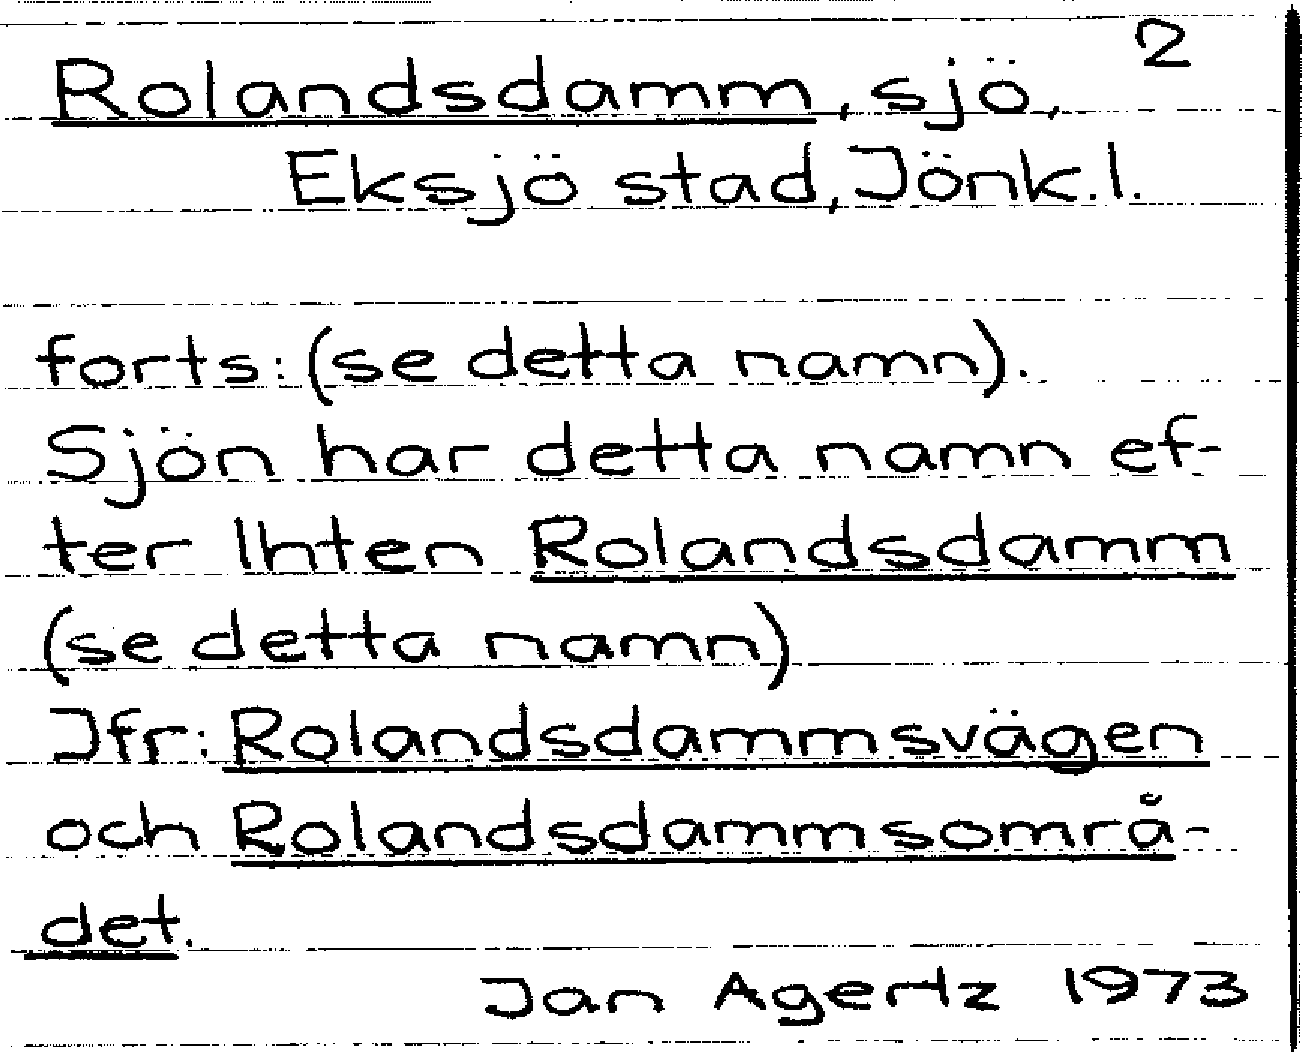 2
Rolandsdamm, sjö,
Eksjö stad, Jönk.l.
forts: (se detta namn).
Sjön har detta namn ef-
ter lhten Rolandsdamm
(se detta namn)
Jfr: Rolandsdammsvägen
och Rolandsdammsområ-
det.
Jan Agertz 1973